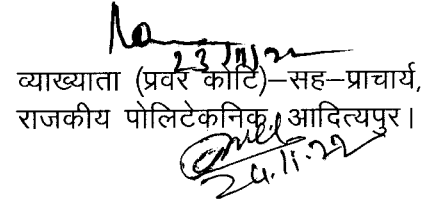 23/11/22
व्याख्याता (प्रवर कोटि)–सह–प्राचार्य,
राजकीय पोलिटेकनिक, आदित्यपुर।
24.11.22